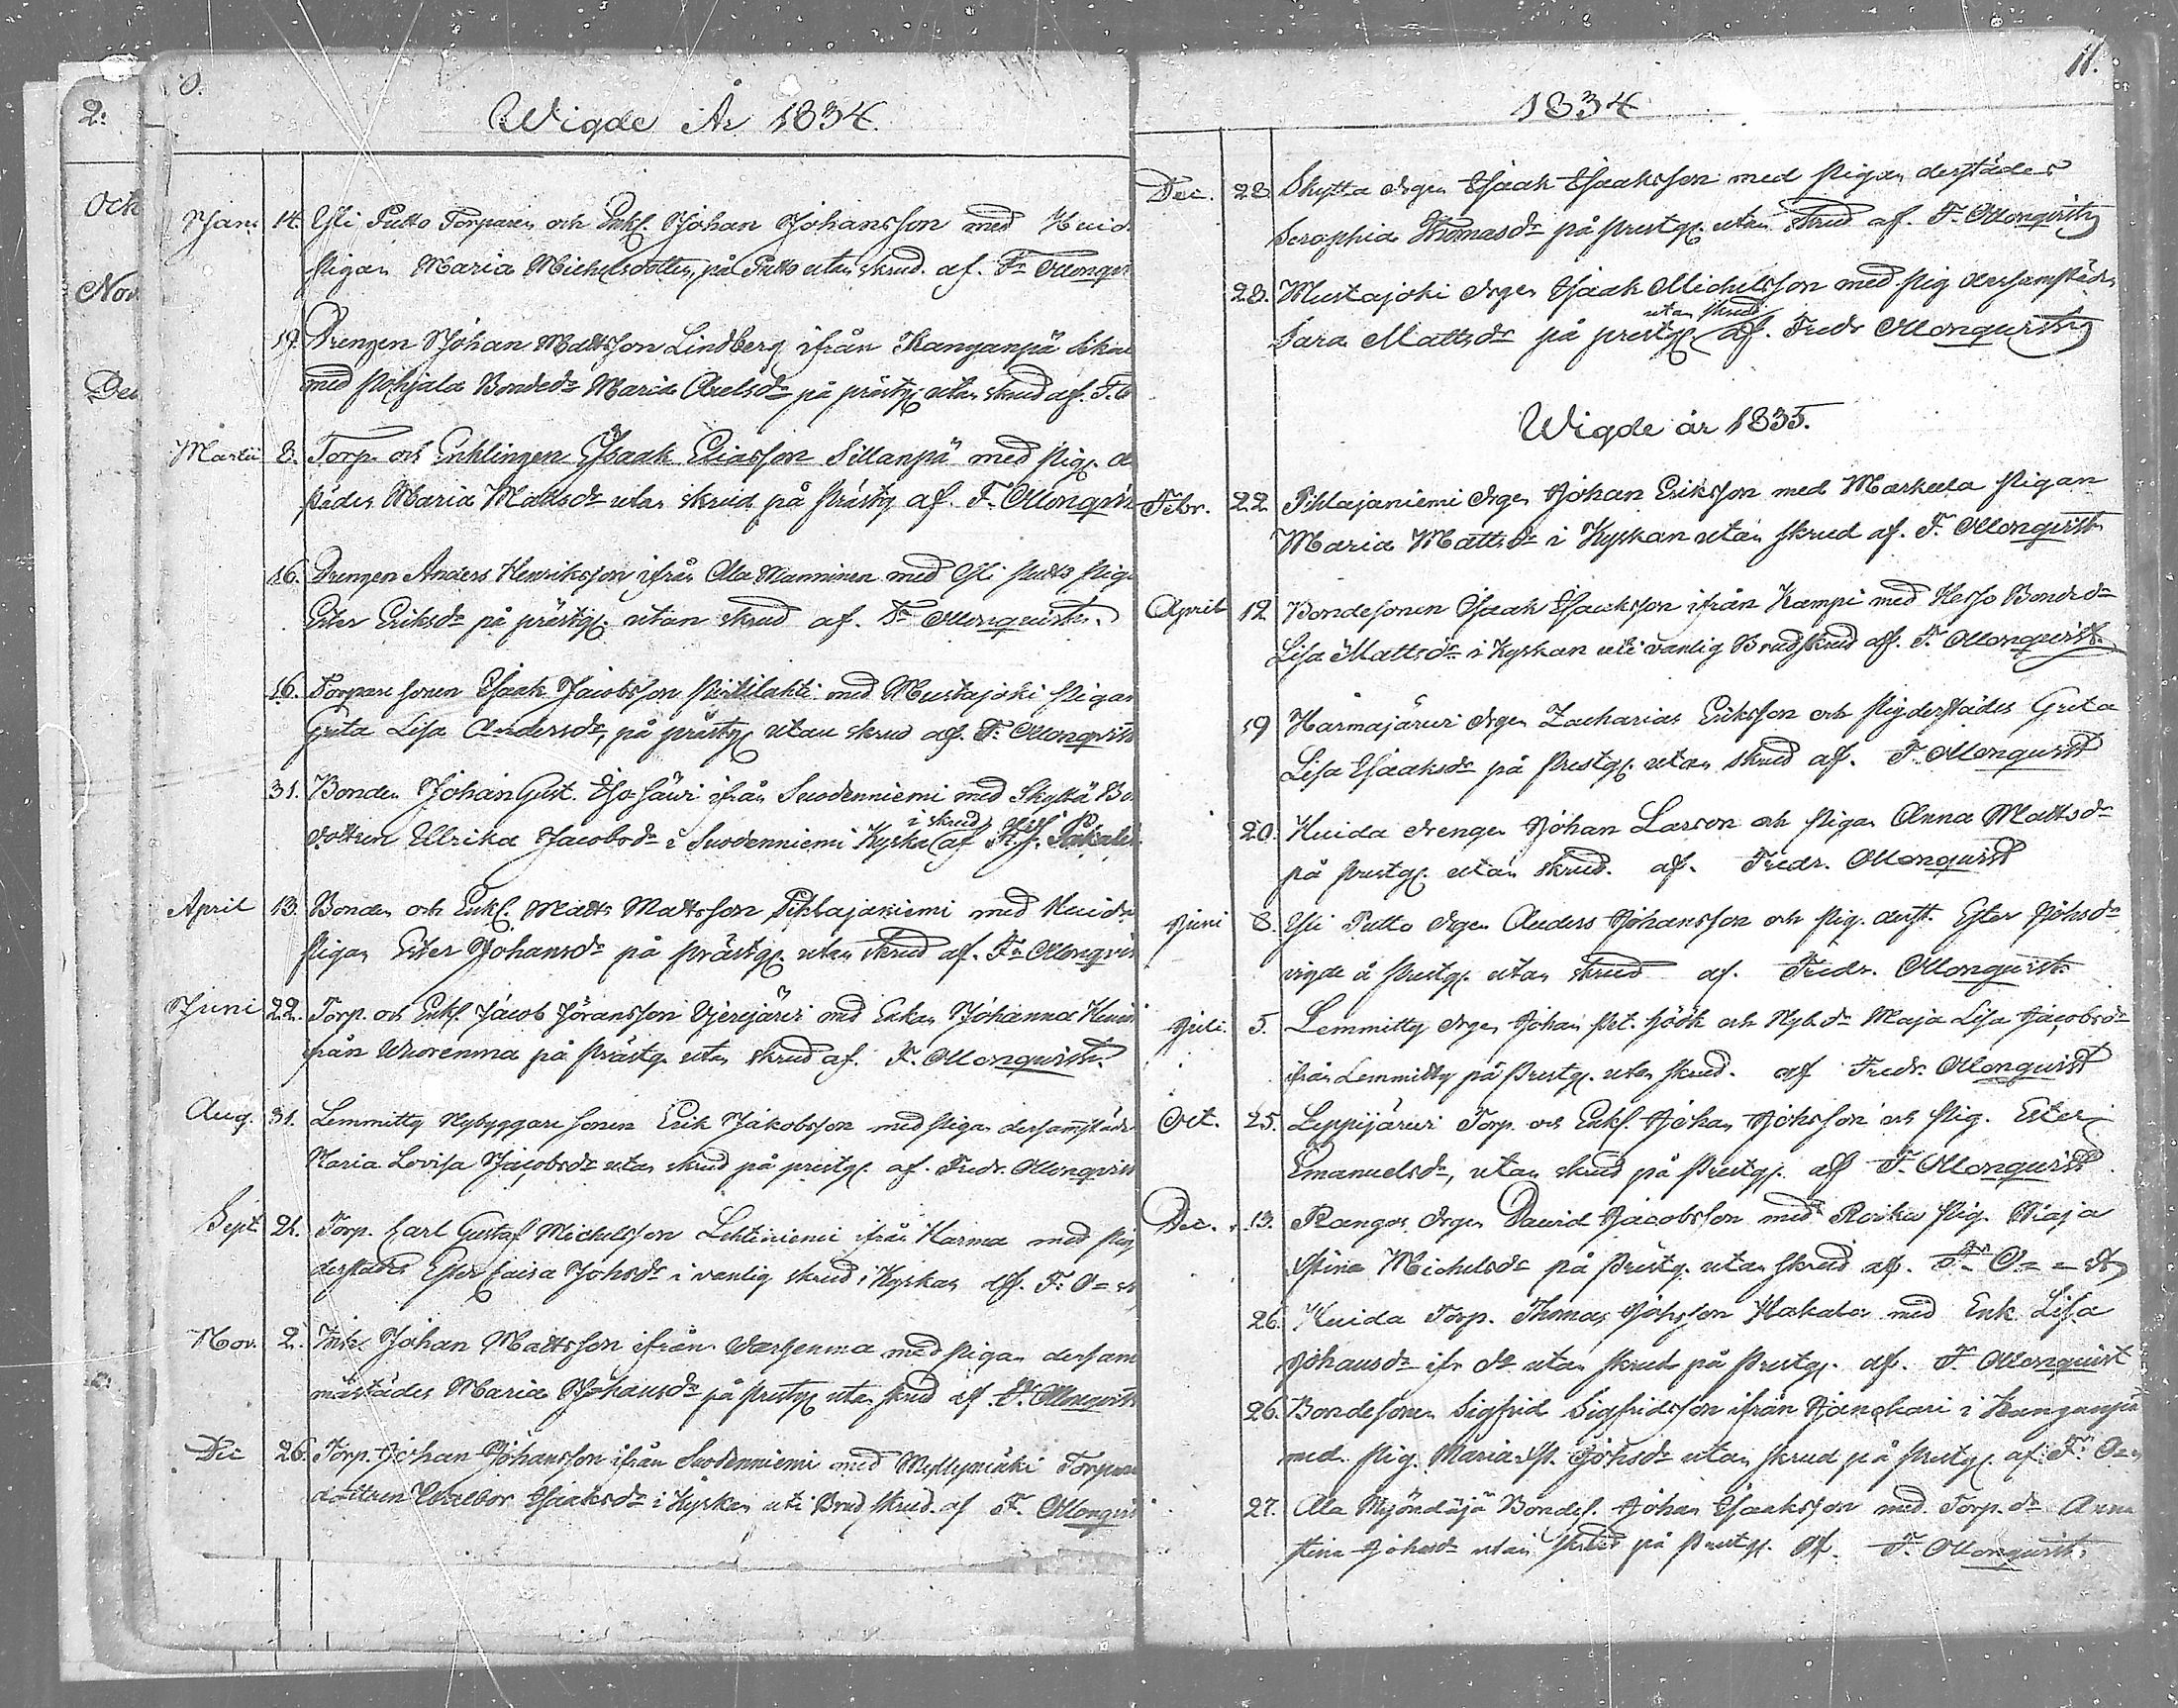 2.
Oct
Nov.
Dec
0.
Wigde År 1834.
Jan. 14. Yli Putto Torparen och Enkl. Johan Johansson med Huid
pigan Maria Michelsdotter, på Putto utan skrud. af. Fr Ollonqvi
19. Drengen Johan Mattsson Lindberg ifrån Kanganpä
med Pohjala Bondedr Maria Axelsdr på prästg. utan skrud af. F. O
Martii 8. Torp. och Enklingen Isaak Eliasson Sillanpä med pig. d
städes Maria Mattsdr utan skrud på Prästg af. F. Ollonqvis
16. Drengen Anders Henriksson ifrån Ala Manninen med Yli Putto pig
Ester Eriksdr på prästg. utan skrud af. Fr Ollonquist.
16. Torpare sonen Isaak Jacobsson med Mustajoki Pigan
Greta Lisa Andersdr, på prästg utan skrud af. F. Ollonqvist
31. Bonden Johan Gust. Iso Säwi ifrån Suodenniemi med Skyttä Bo
dottren Ulrika Jacobsdr i Suodenniemi Kyrka i skrud af
April 13. Bonden och Enkl. Matts Mattsson Pihlajaniemi med Huida
Pigan Ester Johansdr på Prästg. utan skrud af. Fr Ollonqvis
Juni 22. Torp. och Enkl. Jacob Göransson med Enkan Johanna
från Wuorenma på Prästg. utan skrud af. F. Ollonquist.
Aug. 31. Lemmitty Nybyggare sonen Erik Jakobsson med Pigan dersamstäde
Maria Lovisa Jacobsdr utan skrud på prestg. af. Fredr. Ollonqvist
Sept. 21. Torp. Carl Gustaf Michelsson Lehtiniemi ifrån Harma med pig
derstädes Ester Caisa Johsdr i vanlig skrud i Kyrkan af. F. O= st
Nov. 2. Johan Mattsson ifrån med Pigan dersam
mastädes Maria Johansdr på Prestg utan skrud af. Fr. Ollonqvist
Dec 26. Torp. Johan Johansson ifrån Suodenniemi med Myllymäki Torpare
dottren Walbor Isaaksdr i Kyrkan uti Brud skrud. af F. Ollonqvi
11.
1834
Dec. 28. Skytta drgen Isaak Isaaksson med Pigan derstädes
Seraphia Thomasdr på prestg. utan skrud af. F. Ollonqvist
28. Mustajoki drgen Isaak Michelsson med pig dersamstädes
utan skrud
Sara Mattsdr på prestg. af. Fredr Ollonquist
Wigde år 1835.
Febr. 22. Pihlajaniemi drgen Johan Eriksson med Markula Pigan
Maria Mattsdr i Kyrkan utan skrud af. F. Ollonquist
April 12. Bondesonen Isaak Isaaksson ifrån Kampi med Kesso Bondedr
Lisa Mattsdr i Kyrkan uti vanlig Brudskrud af. F. Ollonqvist.
19 Harmajärwi drgen Zacharias Eriksson och Pig derstädes Greta
Lisa Isaaksdr på Prestg. utan skrud af. F. Ollonquist
20. Huida drengen Johan Larson och Pigan Anna Mattsdr
på Prestg. utan skrud. af. Fredr. Ollonquist
Juni 8. Yli Putto drgen Anders Johansson och Pig. derst. Ester Johsdr
vigde å Prestg. utan skrud af. Fredr. Ollonquist.
Juli. 5. Lemmitty drgen Johan Pet. Höök och Nyb.dr Maja Lisa Jacobsdr
ifrån Lemmitty på Prestg. utan skrud. af Fredr. Ollonquist
Oct. 25. Leppijärwi Torp. och Enkl. Johan Johsson och Pig. Ester
Emanuelsdr, utan skrud på Prestg. af F. Ollonquist.
Dec. 13. Rangos drgen David Jacobsson med Pig. Maja
Stina Michelsdr på Prestg. utan skrud af. Fr O= = st
26. Huida Torp. Thomas Johsson Hakala med Enk. Lisa
Johansdr ifr dr utan skrud på Prestg. af. F. Ollonquist
26. Bondesonen Sigfrid Sigfridsson ifrån Jänskari i Kanganpä
med Pig. Maria St. Johsdr utan skrud på Prestg. af. Fr O=
27. Ala Myöntäjä Bondes. Johan Isaaksson med Torp. dr Anna
Stina Johsdr utan skrud på Prestg. af. F. Ollonquist.